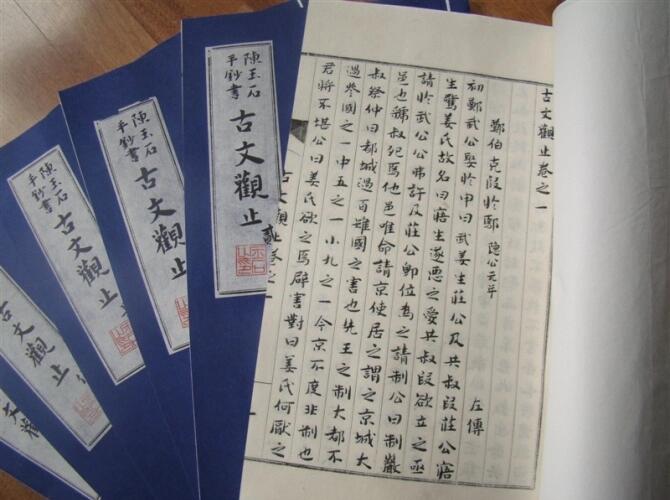 古文觀止卷之一
鄭伯克段於鄢 隱公元年 左傳
初鄭武公娶於申曰武姜生莊公及共叔段莊公寤
生驚姜氏故名曰寤生遂惡之愛共叔段欲立之亟
請於武公公弗許及莊公卽位為之請制公曰制巖
邑也虢叔死焉他邑唯命請京使居之謂之京城大
叔祭仲曰都城過百雉國之害也先王之制大都不
過參國之一中五之一小九之一今京不度非制也
君將不堪公曰姜氏欲之焉辟害對曰姜氏何厭之
古文觀止卷之一
陳玉石
平鈔書
古文觀止
陳玉石
平鈔書
古文觀止
陳玉石
平鈔書
古文觀止
古文觀止
文觀